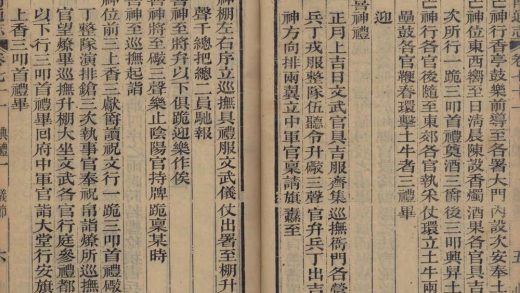 神行香亭鼓樂前導至各署大門內設次安奉土
神位東西嚮至日清晨陳設香燭酒果各官具吉
次所行一跪三叩首禮奠酒三爵後三叩興舁土
神行各官後隨至東郊各官執采仗環立土牛兩
鼓各官鞭春環擊土牛者三禮畢
迎
喜神禮
正月上吉日文武官具吉服齊集巡撫衙門各營
兵丁戎服整隊伍聽令升礮三聲官弁兵丁出吉
神方向排兩翼立中軍官稟請旗纛至
神棚左右序立巡撫具禮服文武儀仗出署至棚升
聲千總把總二員馳報
喜神至將弁以下俱跪迎樂作俟
神將至礮三聲樂止陰陽官持牌跪稟某時
喜神至巡撫起謝
神位前三上香三獻爵讀祝文行一跪三叩首禮礮
丁整隊演排鎗三次執事官奉祝帛詣燎所巡撫
官望燎畢巡撫升棚大坐文武各官行庭參禮都
以下行三叩首禮畢回府中軍官詣大堂行安旗
上香三叩首禮畢
通志 卷七十一 典禮一 儀節 六